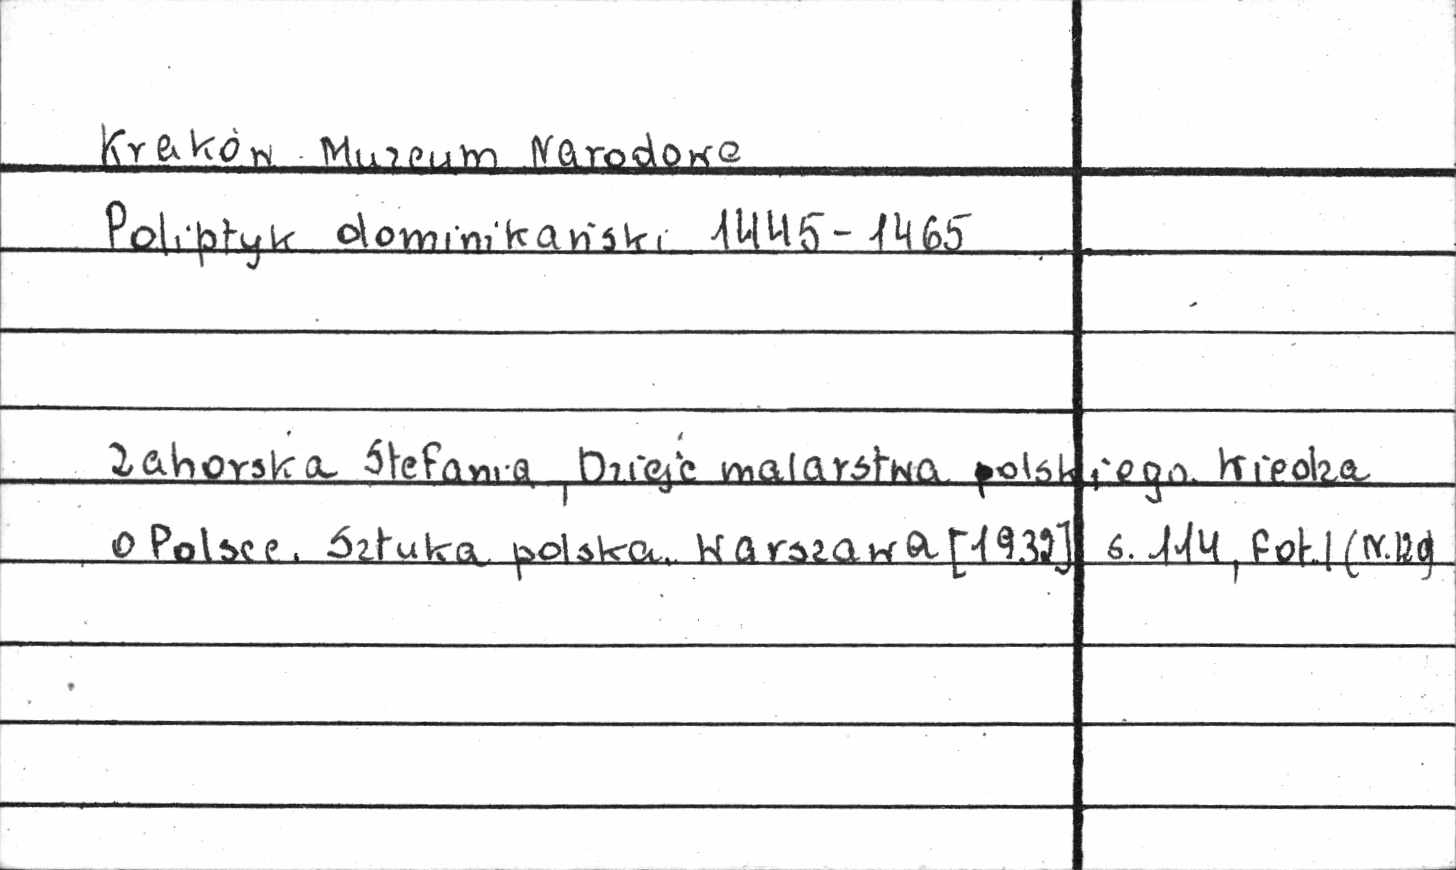 Kraków Muzeum Narodowe
Poliptyk dominikański 1445-1465
Zahorska Stefania, Dzieje malarstwa polskiego. Wiedza
o Polsce. Sztuka polska. Warszawa [1932] s. 114, fot. 1 (N.129